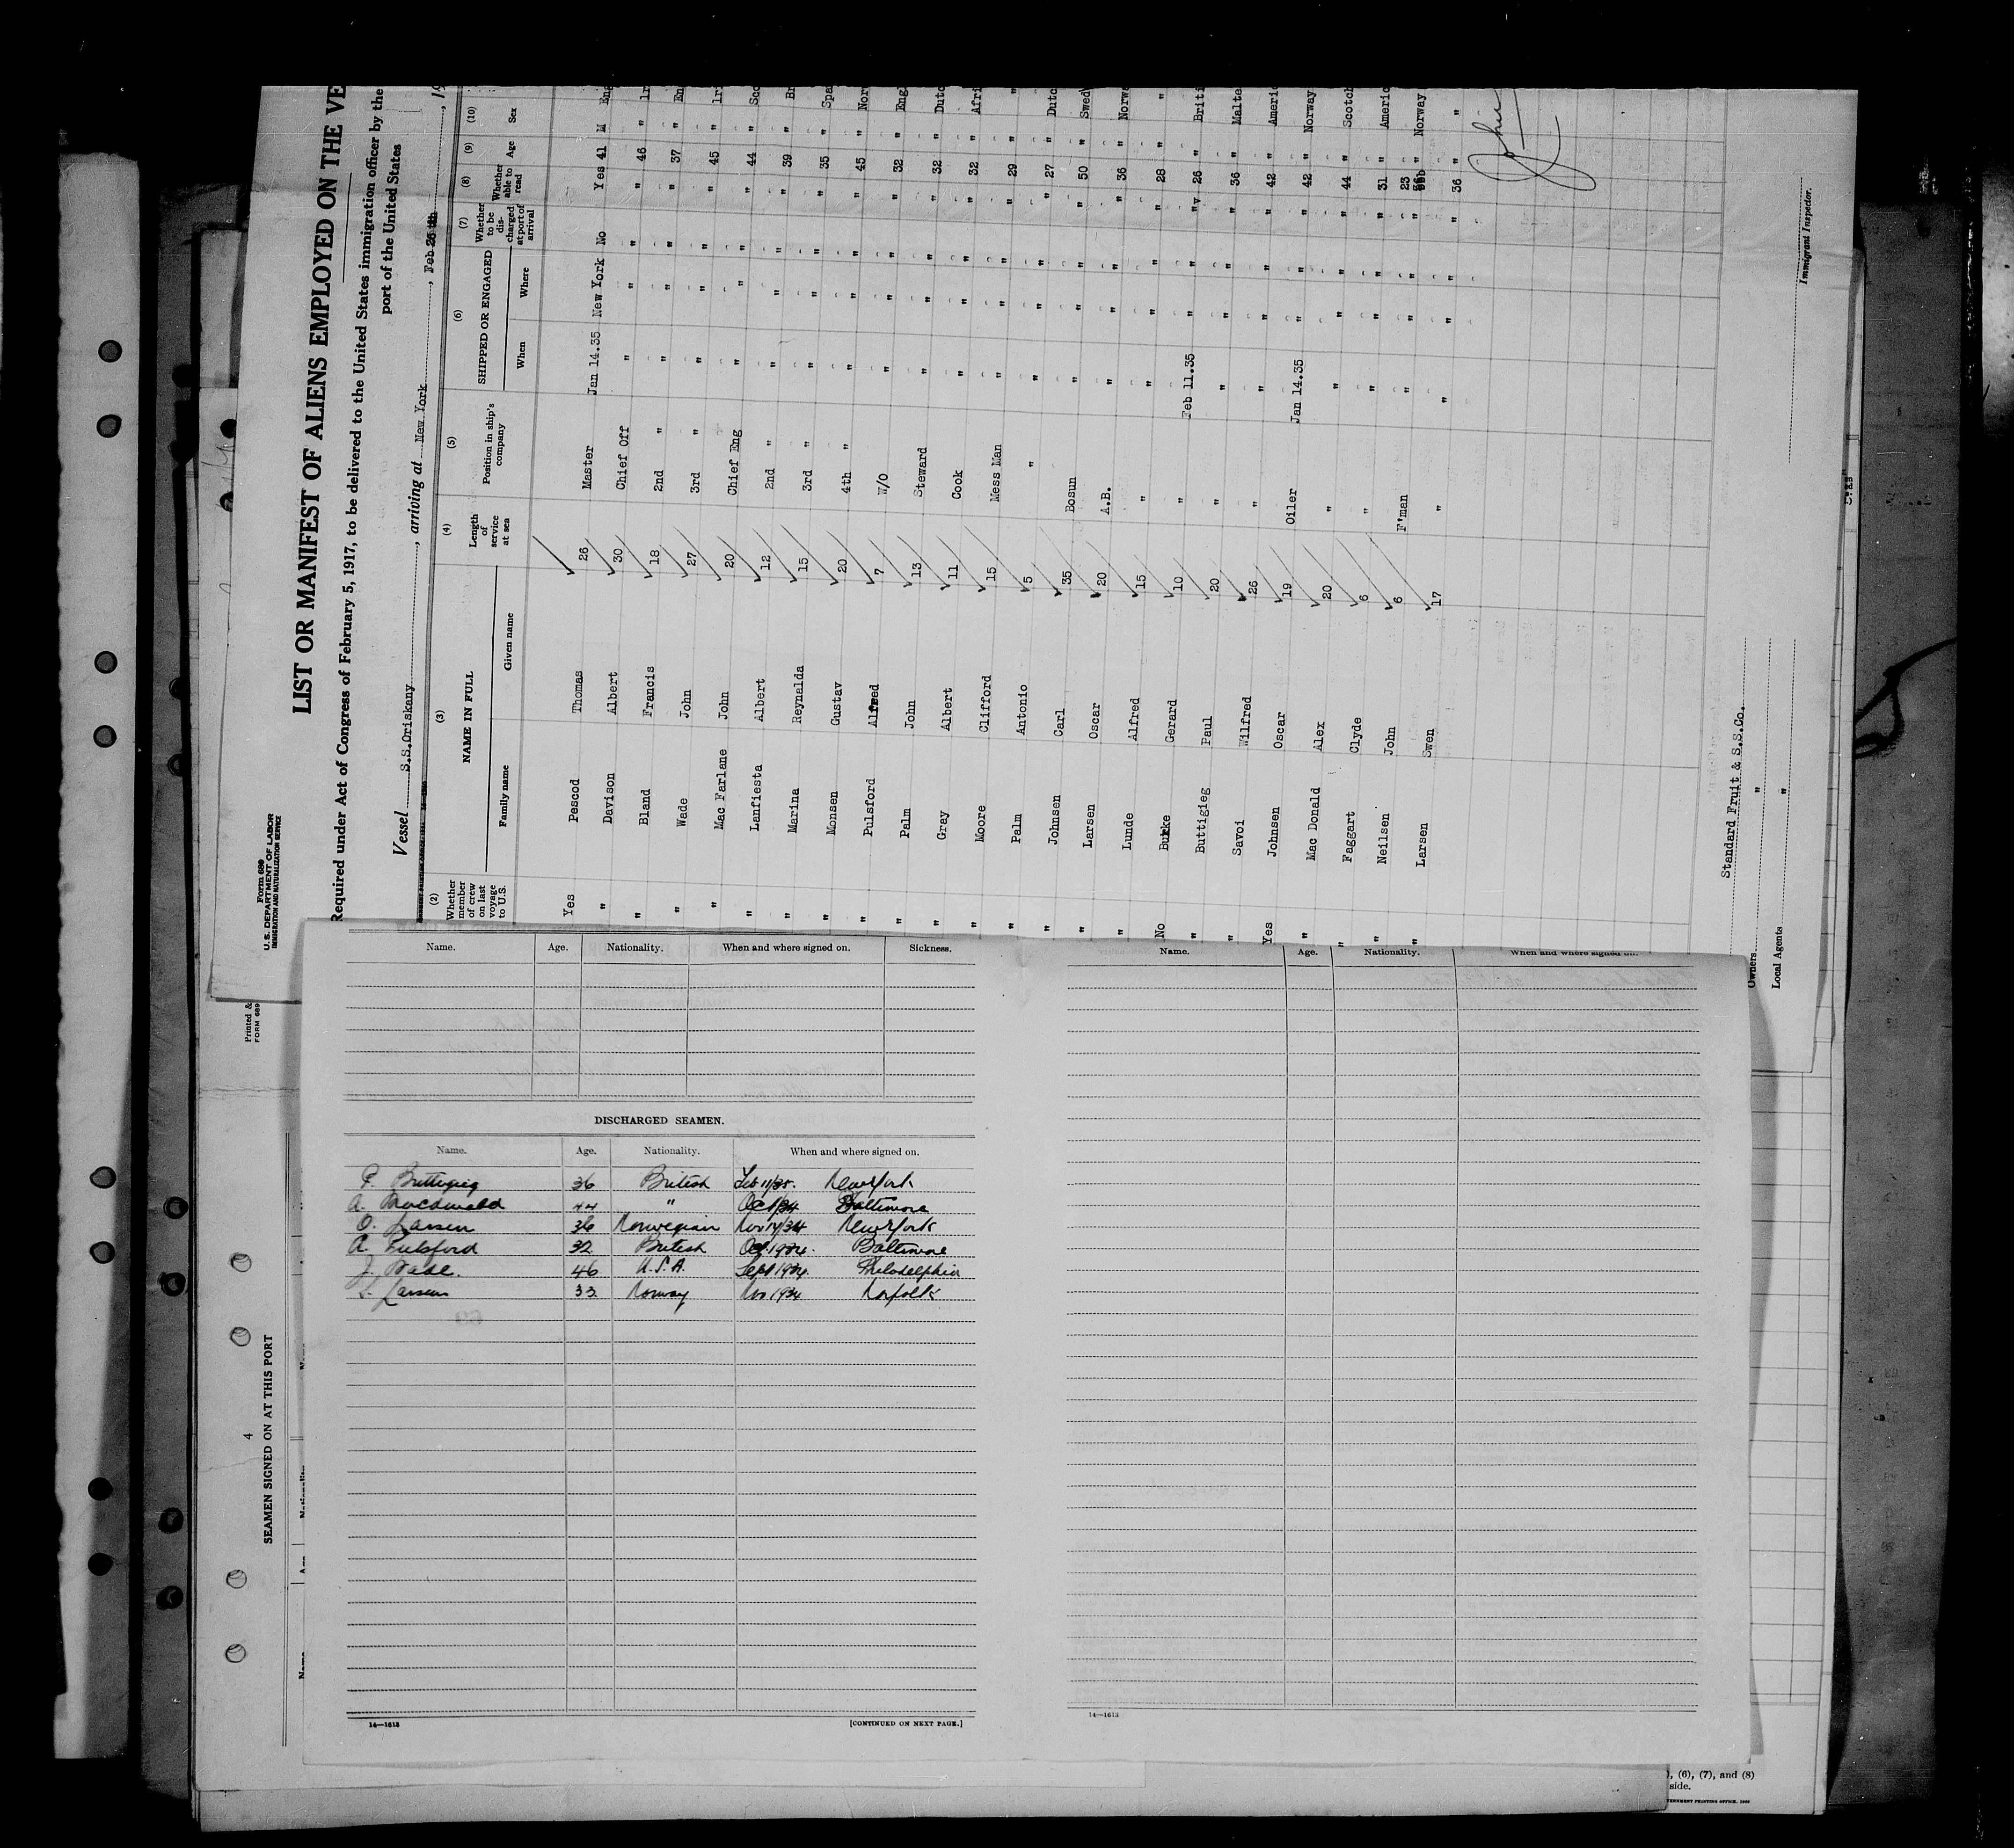 Form 689
U. S. DEPARTMENT OF LABOR
IMMIGRATION AND NATURALIZATION SERVICE
LIST OR MANIFEST OF ALIENS EMPLOYED ON THE VE
Required under Act of Congress of February 5, 1917, to be delivered to the United States immigration officer by the
port of the United States
Vessel S.S.Oriskany, arriving at New York, Feb 19
(2) (3) (4) (5) (6) (7) (8) (9) (10)
Whether member of crew on last voyage to U.S. NAME IN FULL Family name Given name Length of service at sea Position in ship's company SHIPPED OR ENGAGED When Where Whether to be discharged at port of arrival Whether able to read Age Sex
Yes Pescod Thomas 26 Master Jan 14.35 New York No Yes 41 M Eng
" Davison Albert 30 Chief Off " " " " 46 " Ir
" Bland Francis 18 2nd " " " " " 37 " En
" Wade John 27 3rd " " " " " 45 " Ir
" Mac Farlane John 20 Chief Eng " " " " 44 " Sco
" Lanfiesta Albert 12 2nd " " " " " 39 " Br
" Marina Reynalda 15 3rd " " " " " 35 " Spa
" Monsen Gustav 20 4th " " " " " 45 " Nor
" Pulsford Alfred 7 W/O " " " " 32 " Eng
" Palm John 13 Steward " " " " 32 " Dutc
" Gray Albert 11 Cook " " " " 32 " Afri
" Moore Clifford 15 Mess Man " " " " 29 " "
" Palm Antonio 5 " " " " " 27 " Dutc
" Johnsen Carl 35 Bosun " " " " 50 " Swed
" Larsen Oscar 20 A.B. " " " " 36 " Norwa
" Lunde Alfred 15 " " " " " 28 " "
No Burke Gerard 10 " Feb 11.35 " " " 26 " Briti
" Buttigieg Paul 20 " " " " " 36 " Malte
" Savoi Wilfred 26 " " " " " 42 " Americ
Yes Johnsen Oscar 19 Oiler Jan 14.35 " " " 42 " Norway
" Mac Donald Alex 20 " " " " " 44 " Scotch
" Faggart Clyde 6 " " " " " 31 " Americ
" Neilsen John 6 F'man " " " " 23 " Norway
" Larsen Swen 17 " " " " " 36 " "
John
Immigrant Inspector.
Standard Fruit & S.S.Co.
Owners "
Local Agents "
Printed &
FORM 689
4
SEAMEN SIGNED ON AT THIS PORT
Name Age Nationality
Name. Age. Nationality. When and where signed on. Sickness.
DISCHARGED SEAMEN.
Name. Age. Nationality. When and where signed on.
P. Buttigieg 36 British Feb 11/35. New York
A. Macdonald 44 " Oct/34 Baltimore
O. Larsen 36 Norwegian Nov 14/34 New York
A. Pulsford 32 British Oct 1934. Baltimore
J. Wade. 46 U.S.A. Sept 1934. Philadelphia
Larsen 33 Norway Nov 1934 Norfolk
14—1613 [CONTINUED ON NEXT PAGE.]
Name. Age. Nationality. When and where signed on.
14—1613
, (6), (7), and (8)
side.
ERNMENT PRINTING OFFICE